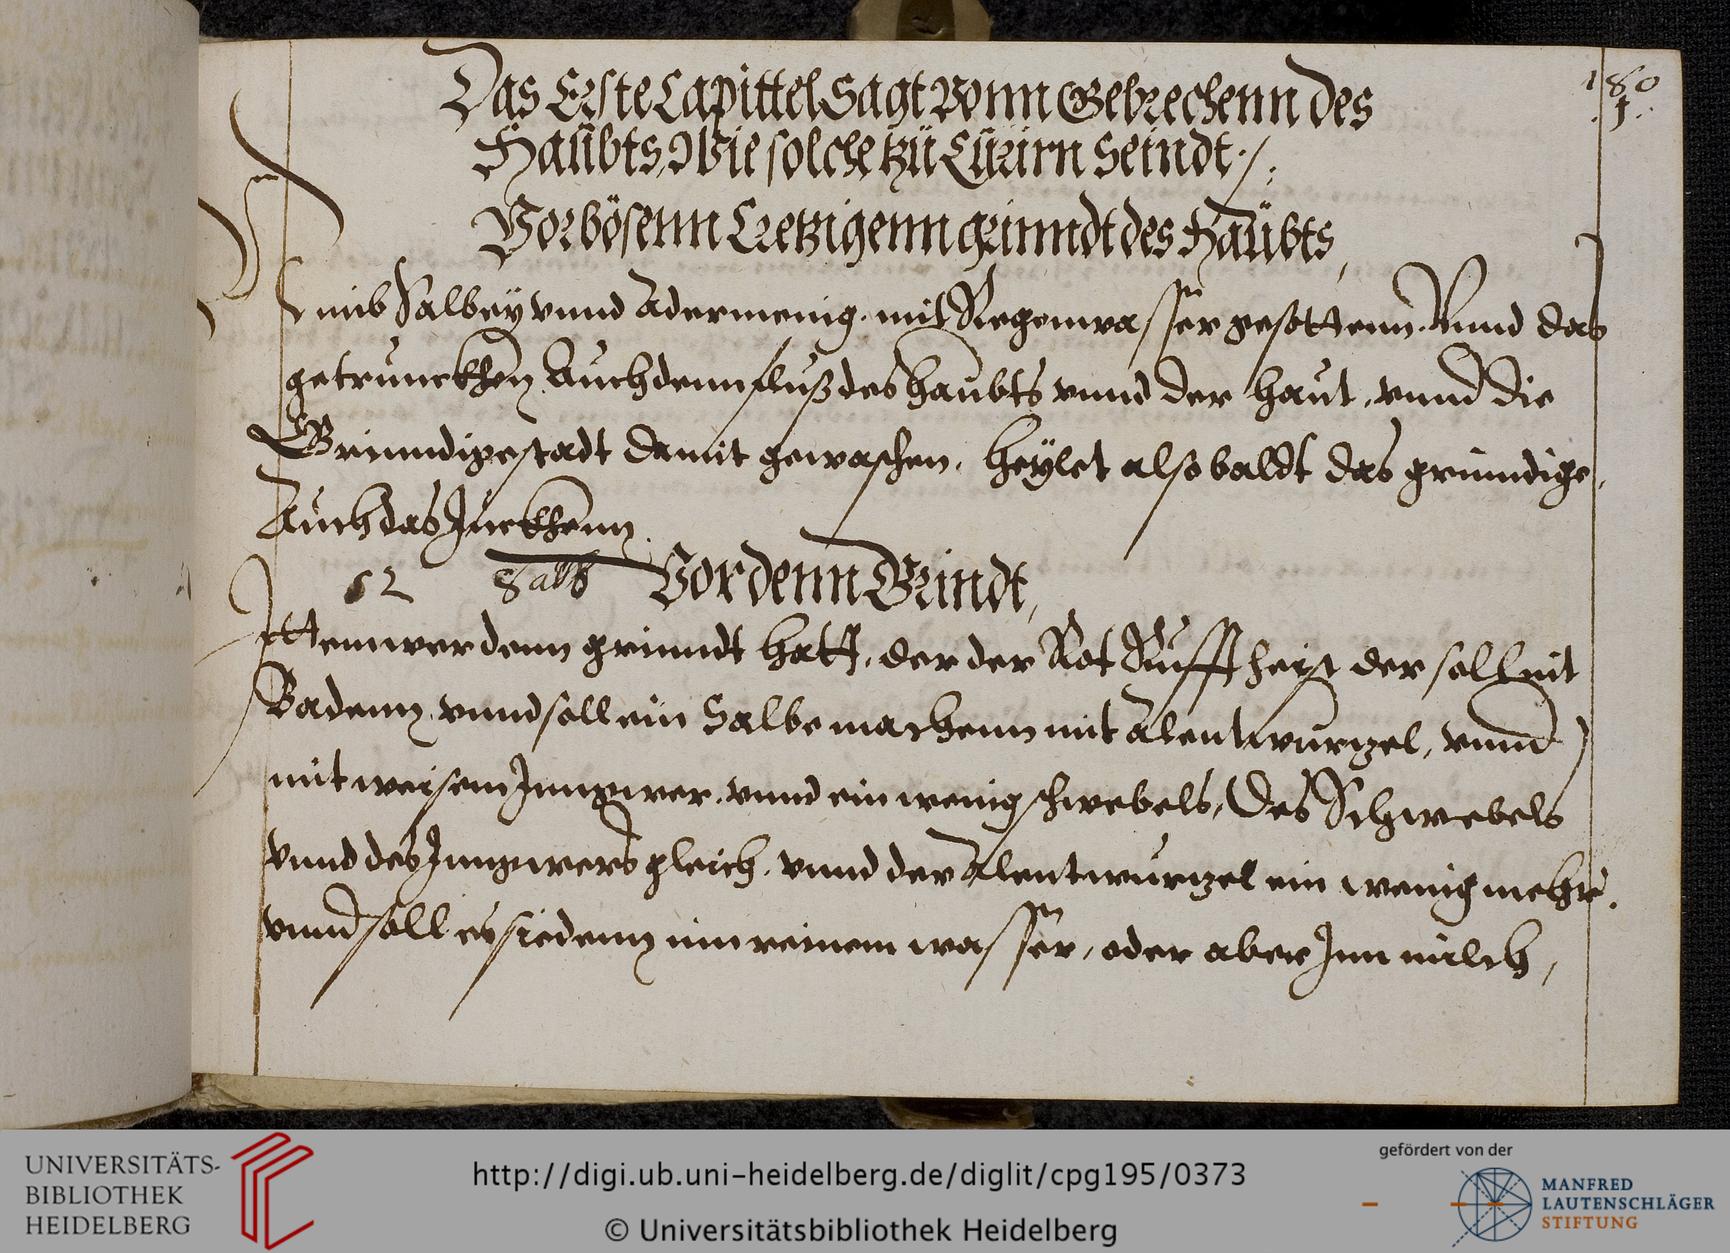 180
.1.
Das Erste Capittel Sagt Vonn Gebrechenn des
Haubts, Wie solche tzu Curirn Seindt ./.
Vor bösenn Cretzigenn grinndt des Haubts,
Nimb Salbey vnnd Adermenig. mit Regenwasser gesottenn. Vnnd das
getrunckhen, Auch denn fluß des haubts vnnd der haut, vnnd die
Grinndige stadt damit gewaschen, heylet also baldt das grinndige,
Auch das Juckhenn.
52 Salb Vor denn Grindt,
Ittem wer denn grinndt hatt, der der Rot Rufft heist der soll nit
Badenn, vnnd soll ein Salbe machenn mit Alentwurtzel, vnnd
mit weisem Inngwer, vnnd ein wenig schwebels, Des Schwebels
vnnd des Inngwers gleich, vnnd der Alentwurtzel ein wenig mehr.
vnnd soll es siedenn inn reinem wasser, oder aber Inn milch,
UNIVERSITÄTS-
BIBLIOTHEK
HEIDELBERG
http://digi.ub.uni-heidelberg.de/diglit/cpg195/0373
© Universitätsbibliothek Heidelberg
gefördert von der
MANFRED
LAUTENSCHLÄGER
STIFTUNG